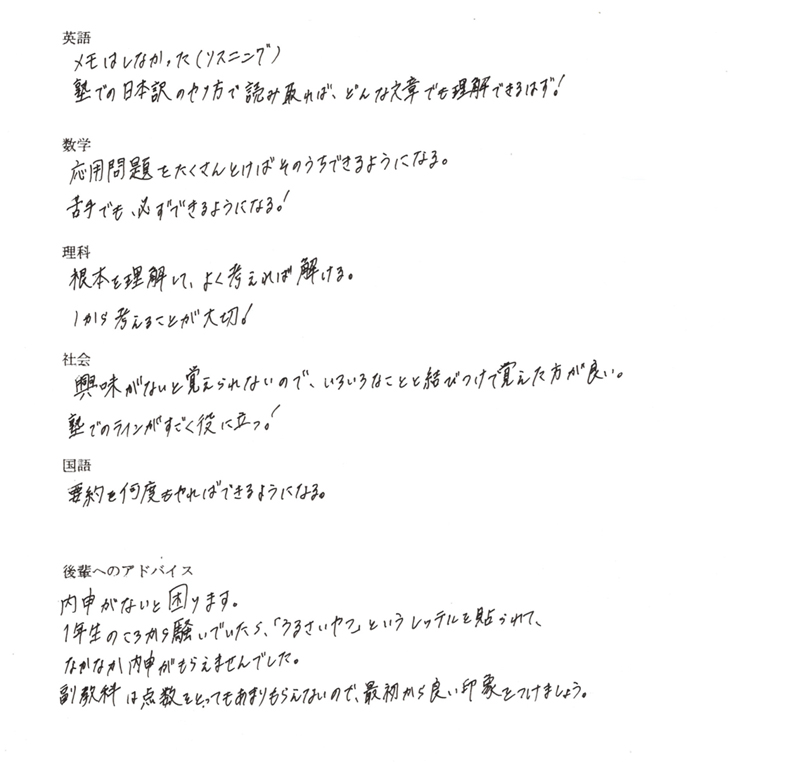 英語
メモはしなかった(リスニング)
塾での日本訳のやり方で読み取れば、どんな文章でも理解できるはず!
数学
応用問題をたくさんとけばそのうちできるようになる。
苦手でも、必ずできるようになる!
理科
根本を理解して、よく考えれば解ける。
1から考えることが大切!
社会
興味がないと覚えられないので、いろいろなことと結びつけて覚えた方が良い。
塾でのラインがすごく役に立つ!
国語
要約を何度もやればできるようになる。
後輩へのアドバイス
内申がないと困ります。
1年生のころから騒いでいたら、「うるさいやつ」というレッテルを貼られて、
なかなか内申がもらえませんでした。
副教科は点数をとってもあまりもらえないので、最初から良い印象をつけましょう。